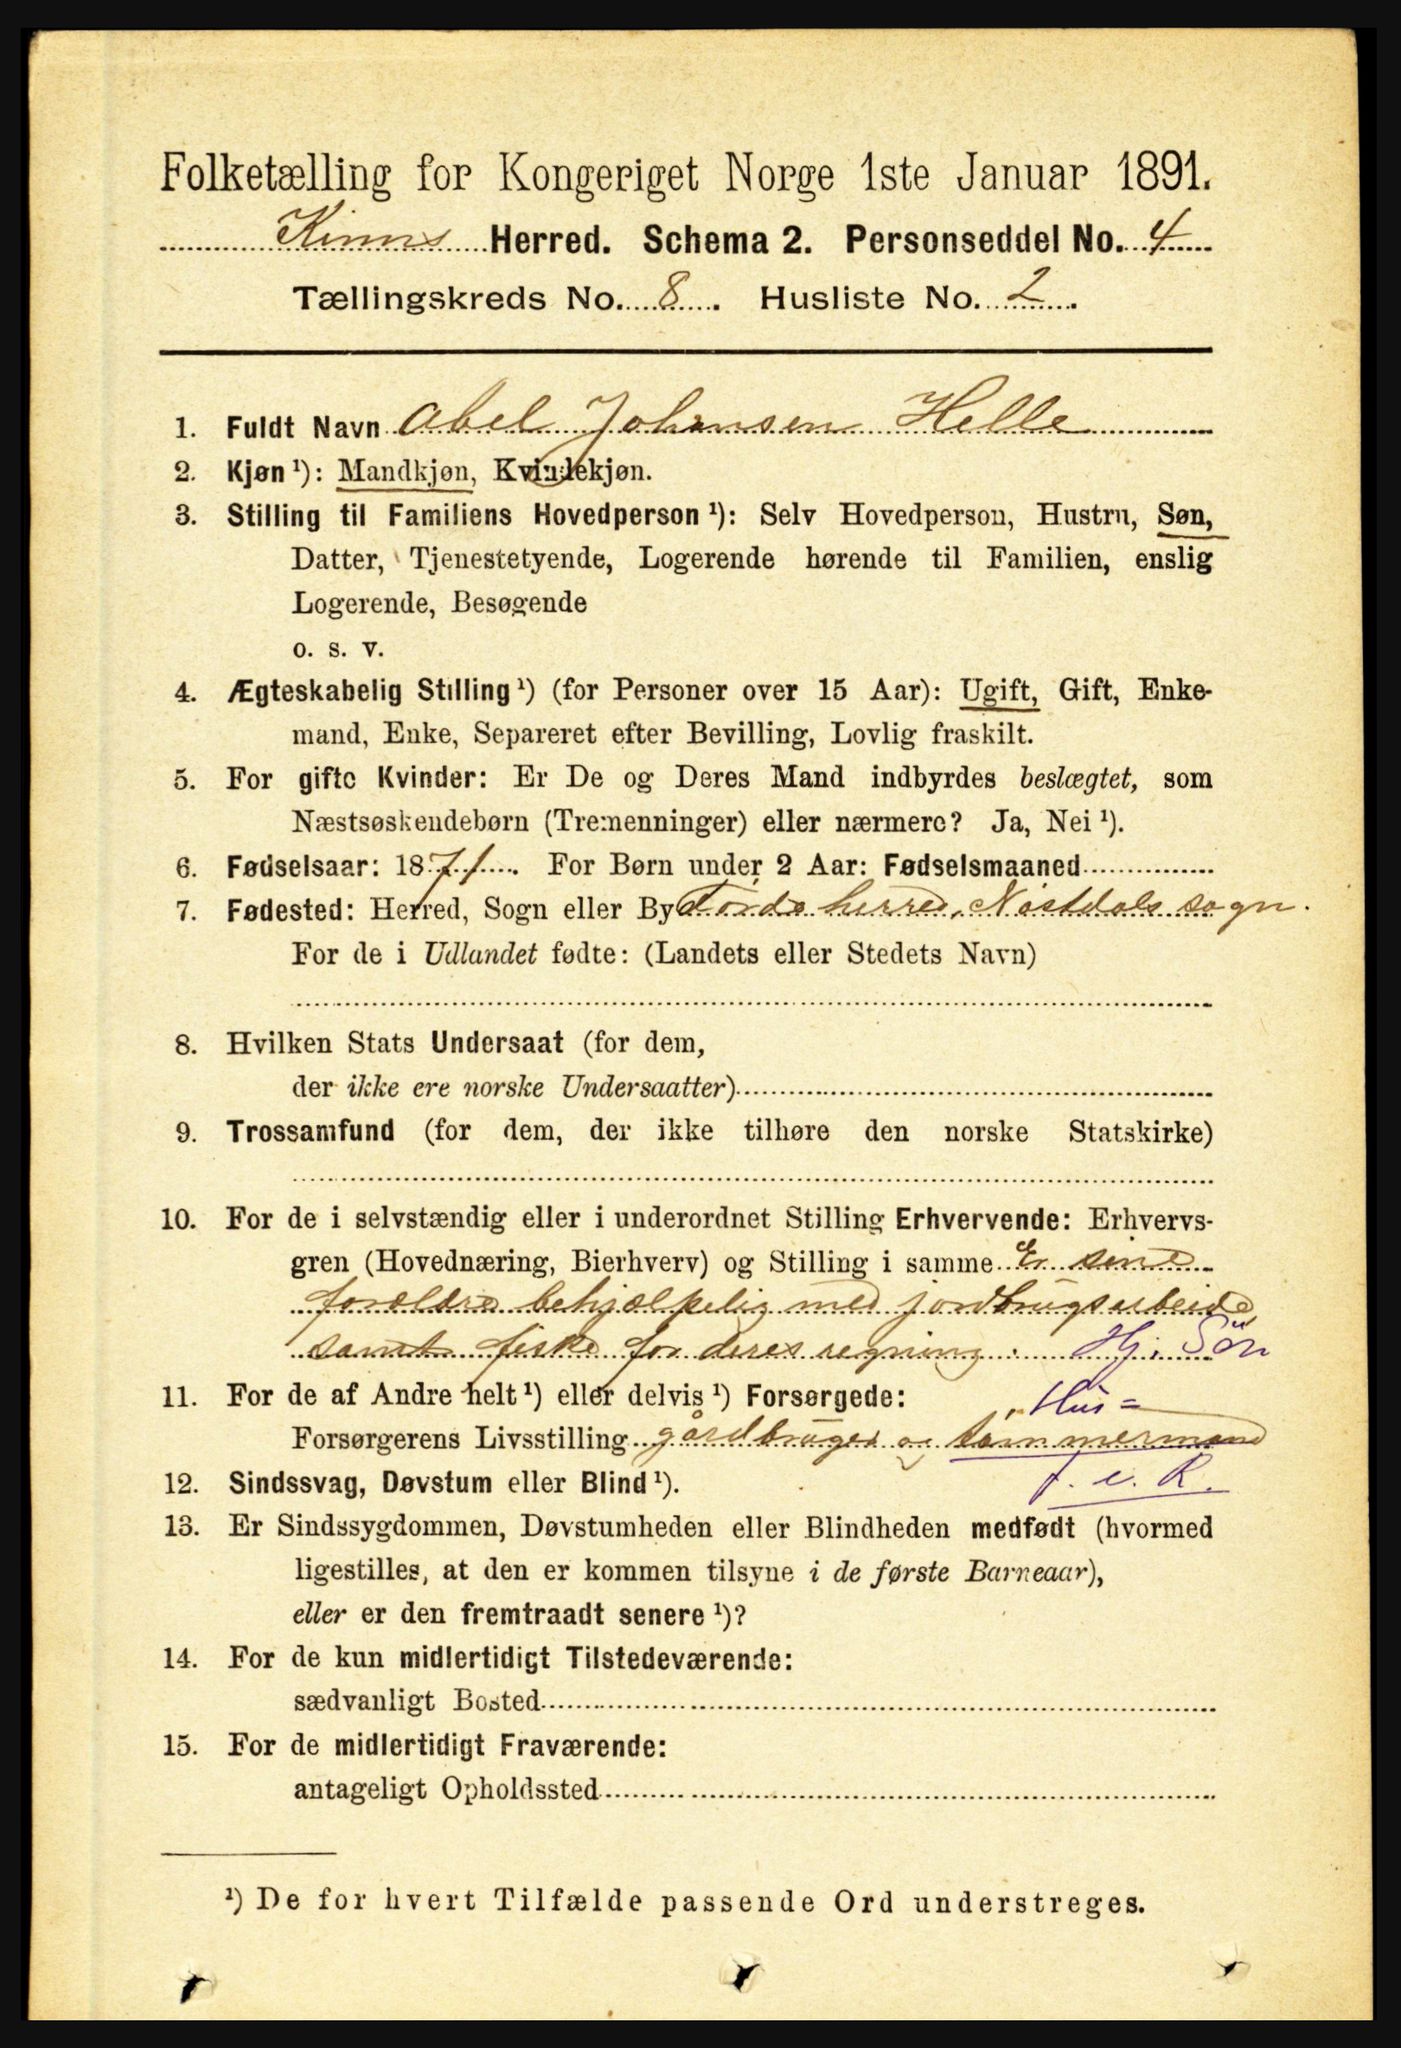 Folketælling for Kongeriget Norge 1ste Januar 1891.
Kinns Herred. Schema 2. Personseddel No. 4
Tællingskreds No. 8. Husliste No. 2.
1. Fuldt Navn Abel Johansen Helle
2. Kjøn ¹): Mandkjøn, Kvindekjøn.
3. Stilling til Familiens Hovedperson ¹): Selv Hovedperson, Hustru, Søn,
Datter, Tjenestetyende, Logerende hørende til Familien, enslig
Logerende, Besøgende
o. s. v.
4. Ægteskabelig Stilling ¹) (for Personer over 15 Aar): Ugift, Gift, Enke-
mand, Enke, Separeret efter Bevilling, Lovlig fraskilt.
5. For gifte Kvinder: Er De og Deres Mand indbyrdes beslægtet, som
Næstsøskendebørn (Tremenninger) eller nærmere? Ja, Nei ¹).
6. Fødselsaar: 1871. For Børn under 2 Aar: Fødselsmaaned
7. Fødested: Herred, Sogn eller By Förde herred, Nöstdals sogn.
For de i Udlandet fødte: (Landets eller Stedets Navn)
8. Hvilken Stats Undersaat (for dem,
der ikke ere norske Undersaatter)
9. Trossamfund (for dem, der ikke tilhøre den norske Statskirke)
10. For de i selvstændig eller i underordnet Stilling Erhvervende: Erhvervs-
gren (Hovednæring, Bierhverv) og Stilling i samme Er sine
forældre behjælpelig med jordbrugsarbeide
samt fiske for deres regning. Hj. Sön
11. For de af Andre helt ¹) eller delvis ¹) Forsørgede:
Hus=
Forsørgerens Livsstilling gårdbruger og tömmermand
f. e. R.
12. Sindssvag, Døvstum eller Blind ¹).
13. Er Sindssygdommen, Døvstumheden eller Blindheden medfødt (hvormed
ligestilles, at den er kommen tilsyne i de første Barneaar),
eller er den fremtraadt senere ¹)?
14. For de kun midlertidigt Tilstedeværende:
sædvanligt Bosted
15. For de midlertidigt Fraværende:
antageligt Opholdssted
¹) De for hvert Tilfælde passende Ord understreges.